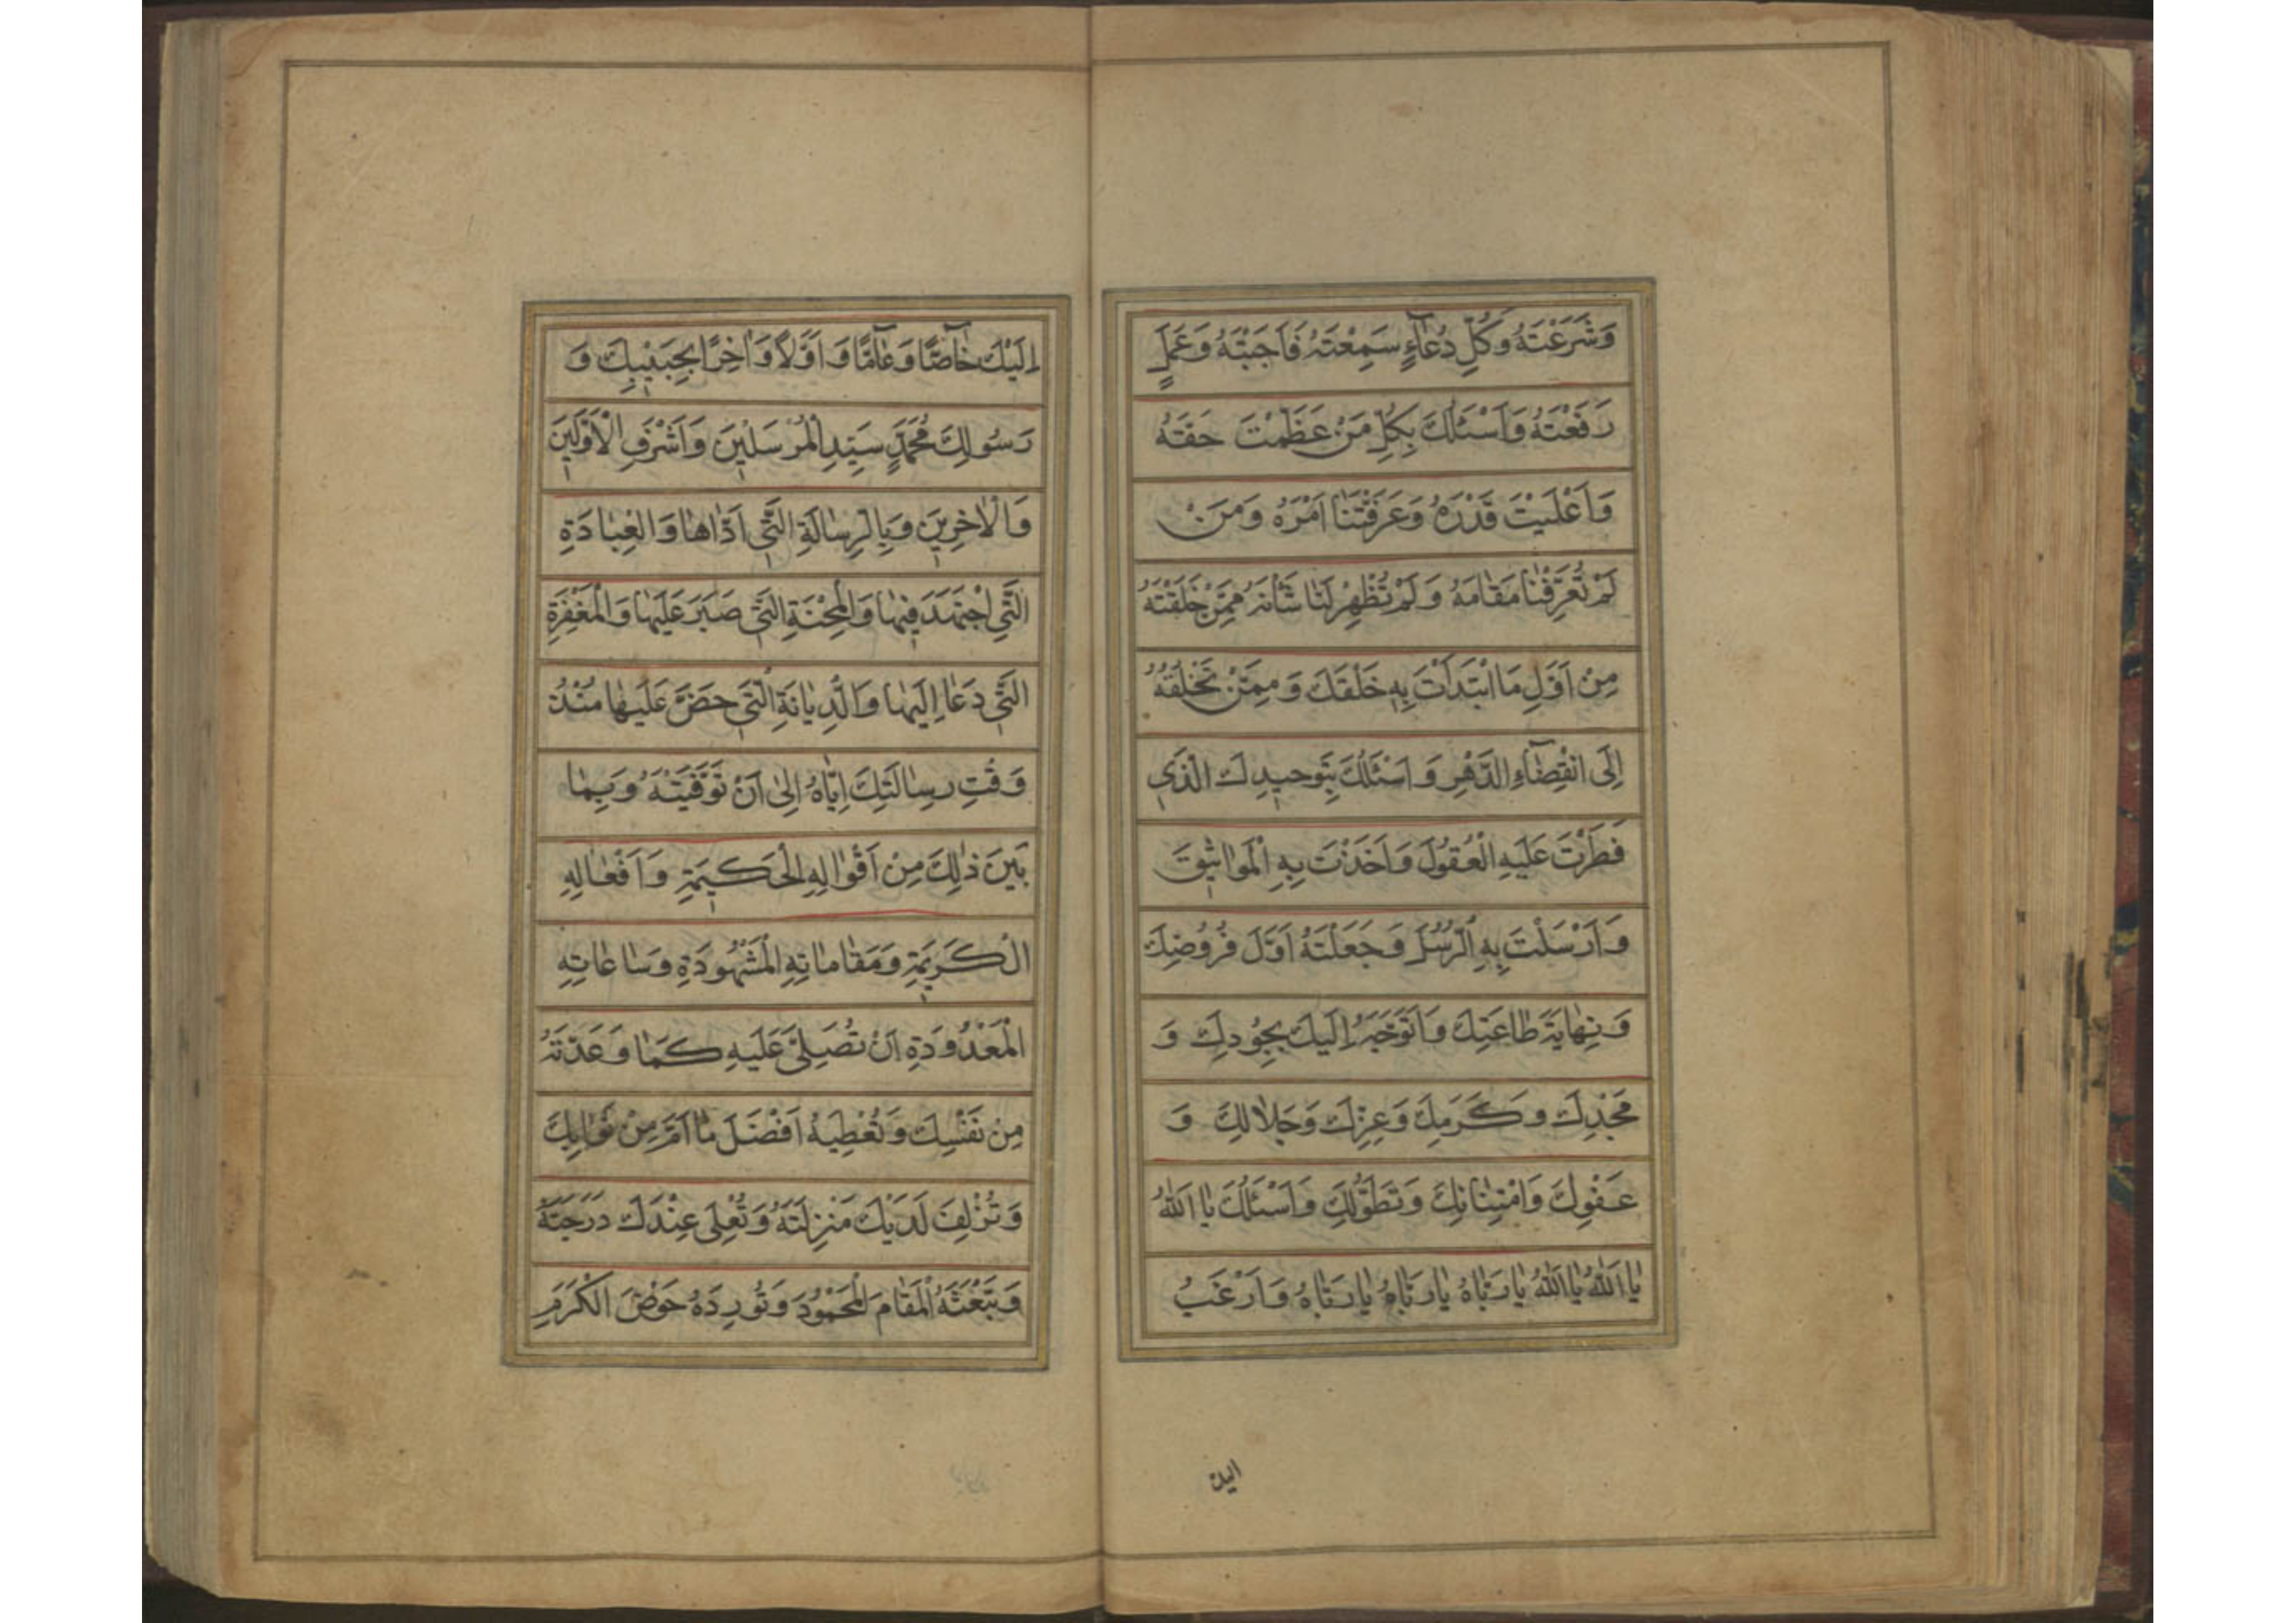 وَشَرَعْتَهُ وَكُلِّ دُعَآءٍ سَمِعْتَهُ فَاَجَبْتَهُ وَعَمَلٍ
رَفَعْتَهُ وَاَسْئَلُكَ بِكُلِّ مَنْ عَظَّمْتَ حَقَّهُ
وَاَعْلَيْتَ قَدْرَهُ وَعَرَّفْتَنَا اَمْرَهُ وَمَنْ
لَمْ تُعَرِّفْنَا مَقَامَهُ وَلَمْ تُظْهِرْ لَنَا شَأْنَهُ مِمَّنْ خَلَقْتَهُ
مِنْ اَوَّلِ مَا ابْتَدَأْتَ بِهِ خَلْقَكَ وَمِمَّنْ تَخْلُقُهُ
اِلَى انْقِضَآءِ الدَّهْرِ وَاَسْئَلُكَ بِتَوْحِيدِكَ الَّذِي
فَطَرْتَ عَلَيْهِ الْعُقُولَ وَاَخَذْتَ بِهِ الْمَوَاثِيقَ
وَاَرْسَلْتَ بِهِ الرُّسُلَ وَجَعَلْتَهُ اَوَّلَ فُرُوضِكَ
وَنِهَايَةَ طَاعَتِكَ وَاَتَوَجَّهُ اِلَيْكَ بِجُودِكَ وَ
مَجْدِكَ وَكَرَمِكَ وَعِزِّكَ وَجَلَالِكَ وَ
عَفْوِكَ وَامْتِنَانِكَ وَتَطَوُّلِكَ وَاَسْئَلُكَ يَا اَللّٰهُ
يَا اَللّٰهُ يَا اَللّٰهُ يَا رَبَّاهُ يَا رَبَّاهُ يَا رَبَّاهُ وَاَرْغَبُ
اليك
اِلَيْكَ خَآصًّا وَعَآمًّا وَاَوَّلًا وَاٰخِرًا بِحَبِيبِكَ وَ
رَسُولِكَ مُحَمَّدٍ سَيِّدِ الْمُرْسَلِينَ وَاَشْرَفِ الْاَوَّلِينَ
وَالْاٰخِرِينَ وَبِالرِّسَالَةِ الَّتِي اَدَّاهَا وَالْعِبَادَةِ
الَّتِي اجْتَهَدَ فِيهَا وَالْمِحْنَةِ الَّتِي صَبَرَ عَلَيْهَا وَالْمَغْفِرَةِ
الَّتِي دَعَا اِلَيْهَا وَالدِّيَانَةِ الَّتِي حَضَّ عَلَيْهَا مُنْذُ
وَقْتِ رِسَالَتِكَ اِيَّاهُ اِلَى اَنْ تَوَفَّيْتَهُ وَبِمَا
بَيْنَ ذٰلِكَ مِنْ اَقْوَالِهِ الْحَكِيمَةِ وَاَفْعَالِهِ
الْكَرِيمَةِ وَمَقَامَاتِهِ الْمَشْهُودَةِ وَسَاعَاتِهِ
الْمَعْدُودَةِ اَنْ تُصَلِّيَ عَلَيْهِ كَمَا وَعَدْتَهُ
مِنْ نَفْسِكَ وَتُعْطِيَهُ اَفْضَلَ مَا اَمَّلَ مِنْ ثَوَابِكَ
وَتُزْلِفَ لَدَيْكَ مَنْزِلَتَهُ وَتُعْلِيَ عِنْدَكَ دَرَجَتَهُ
وَتَبْعَثَهُ الْمَقَامَ الْمَحْمُودَ وَتُورِدَهُ حَوْضَ الْكَرَمِ